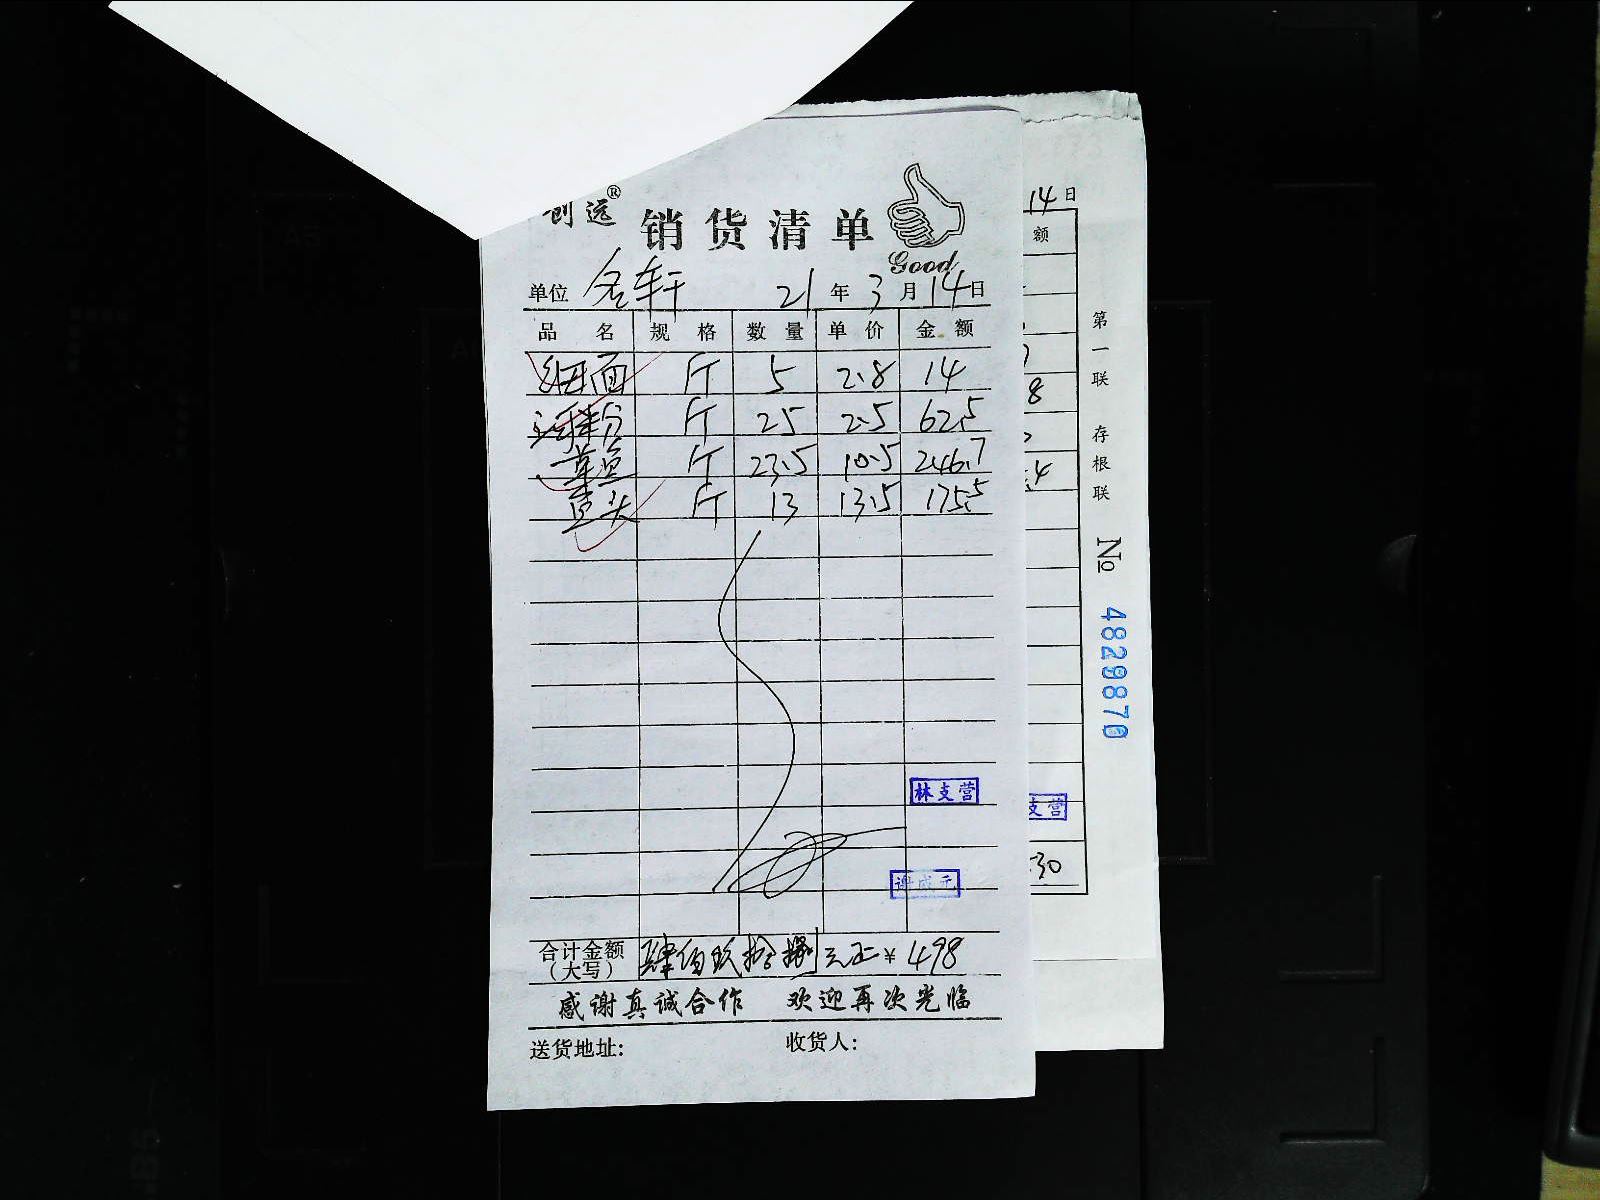 创远®
销货清单
Good
单位 名轩 21年3月14日
品名 规格 数量 单价 金额
细面 斤 5 2.8 14
斤 25 2.5 62.5
草鱼 斤 23.5 10.5 246.7
斤 13 13.5 175.5
林支营
谢成元
合计金额(大写) 肆佰玖拾捌元正 ¥498
感谢真诚合作 欢迎再次光临
送货地址: 收货人:
14日
额
8
.4
支营
30
第一联 存根联
No 4829870